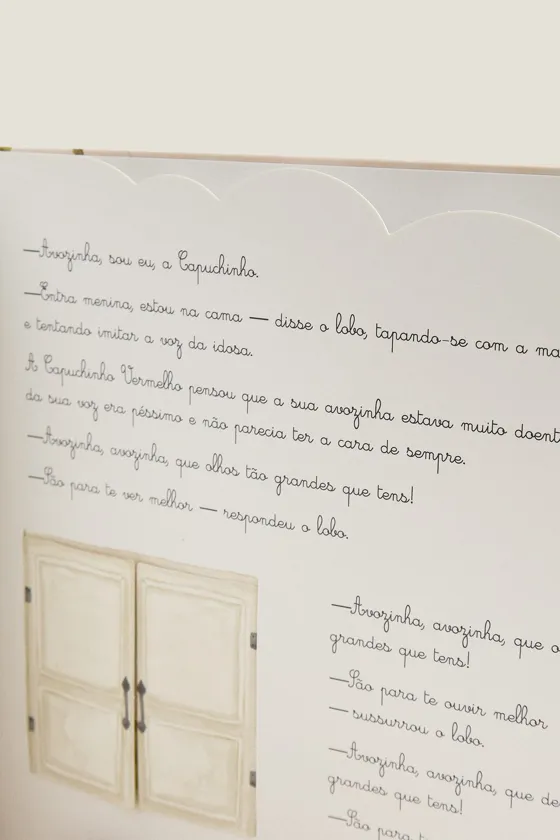 —Avozinha, sou eu, a Capuchinho.
—Entra menina, estou na cama — disse o lobo, tapando-se com a
e tentando imitar a voz da idosa.
A Capuchinho Vermelho pensou que a sua avozinha estava muito
da sua voz era péssimo e não parecia ter a cara de sempre.
—Avozinha, avozinha, que olhos tão grandes que tens!
—São para te ver melhor — respondeu o lobo.
—Avozinha, avozinha, que
grandes que tens!
—São para te ouvir melhor
— sussurrou o lobo.
—Avozinha, avozinha, que
grandes que tens!
—São para